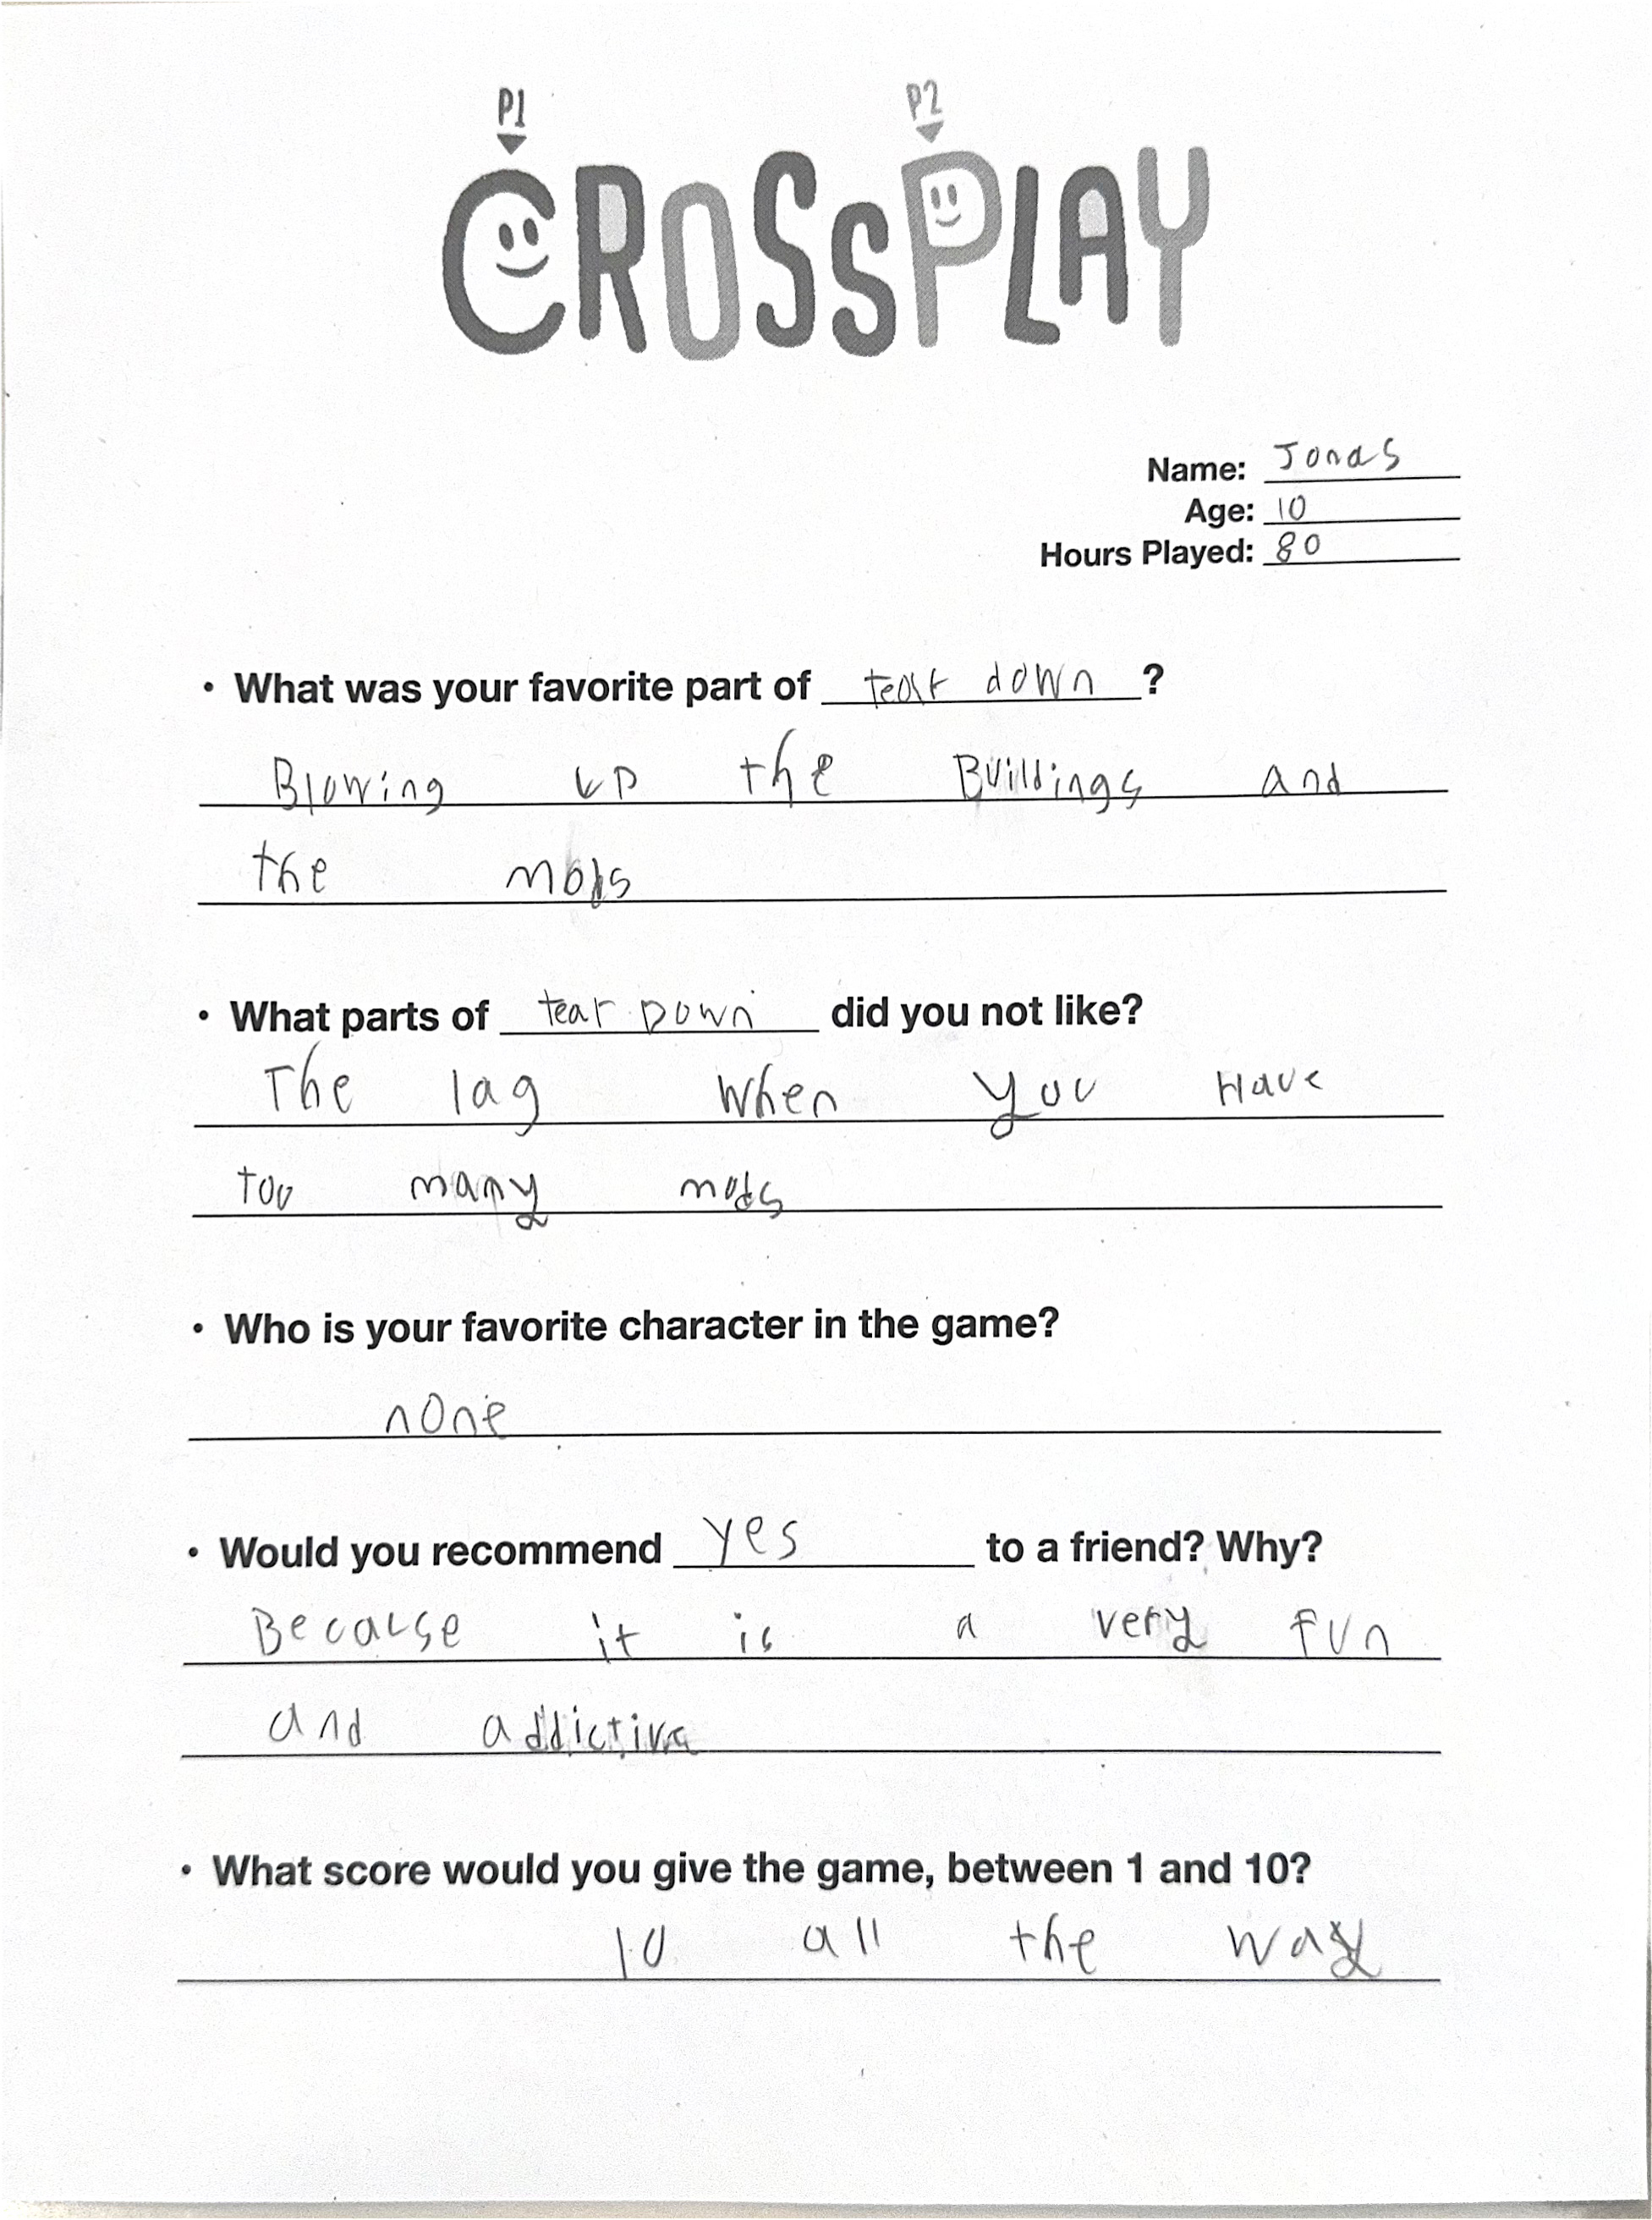 P1 P2
CROSSPLAY
Name: Jonas
Age: 10
Hours Played: 80
• What was your favorite part of tear down ?
Blowing up the Buildings and
the mods
• What parts of tear Down did you not like?
The lag when you Have
too many mods
• Who is your favorite character in the game?
none
• Would you recommend yes to a friend? Why?
Because it is a very fun
and addictive
• What score would you give the game, between 1 and 10?
10 all the way